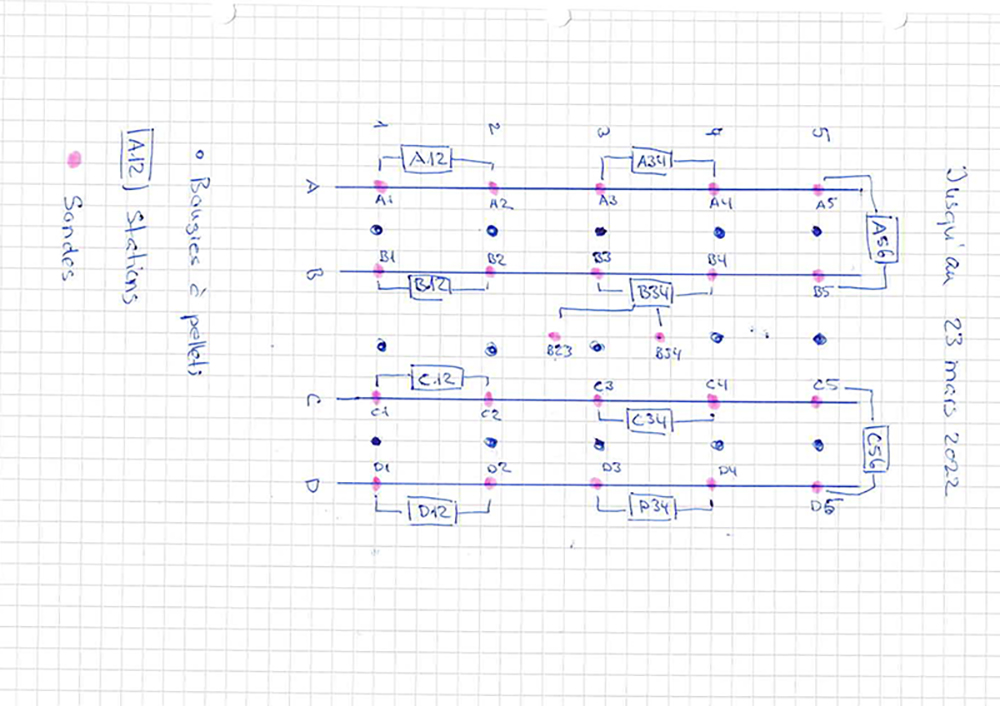 Jusqu'au 23 mars 2022
1 2 3 4 5
A12 A34
A
A1 A2 A3 A4 A5
A56
B1 B2 B3 B4
B
B12 B34 B5
B23 B34
C12
C3 C4 C5
C
C1 C2
C34
C56
D1 D2 D3 D4
D
D5
D12 D34
• Bougies à pellets
A12 Stations
Sondes